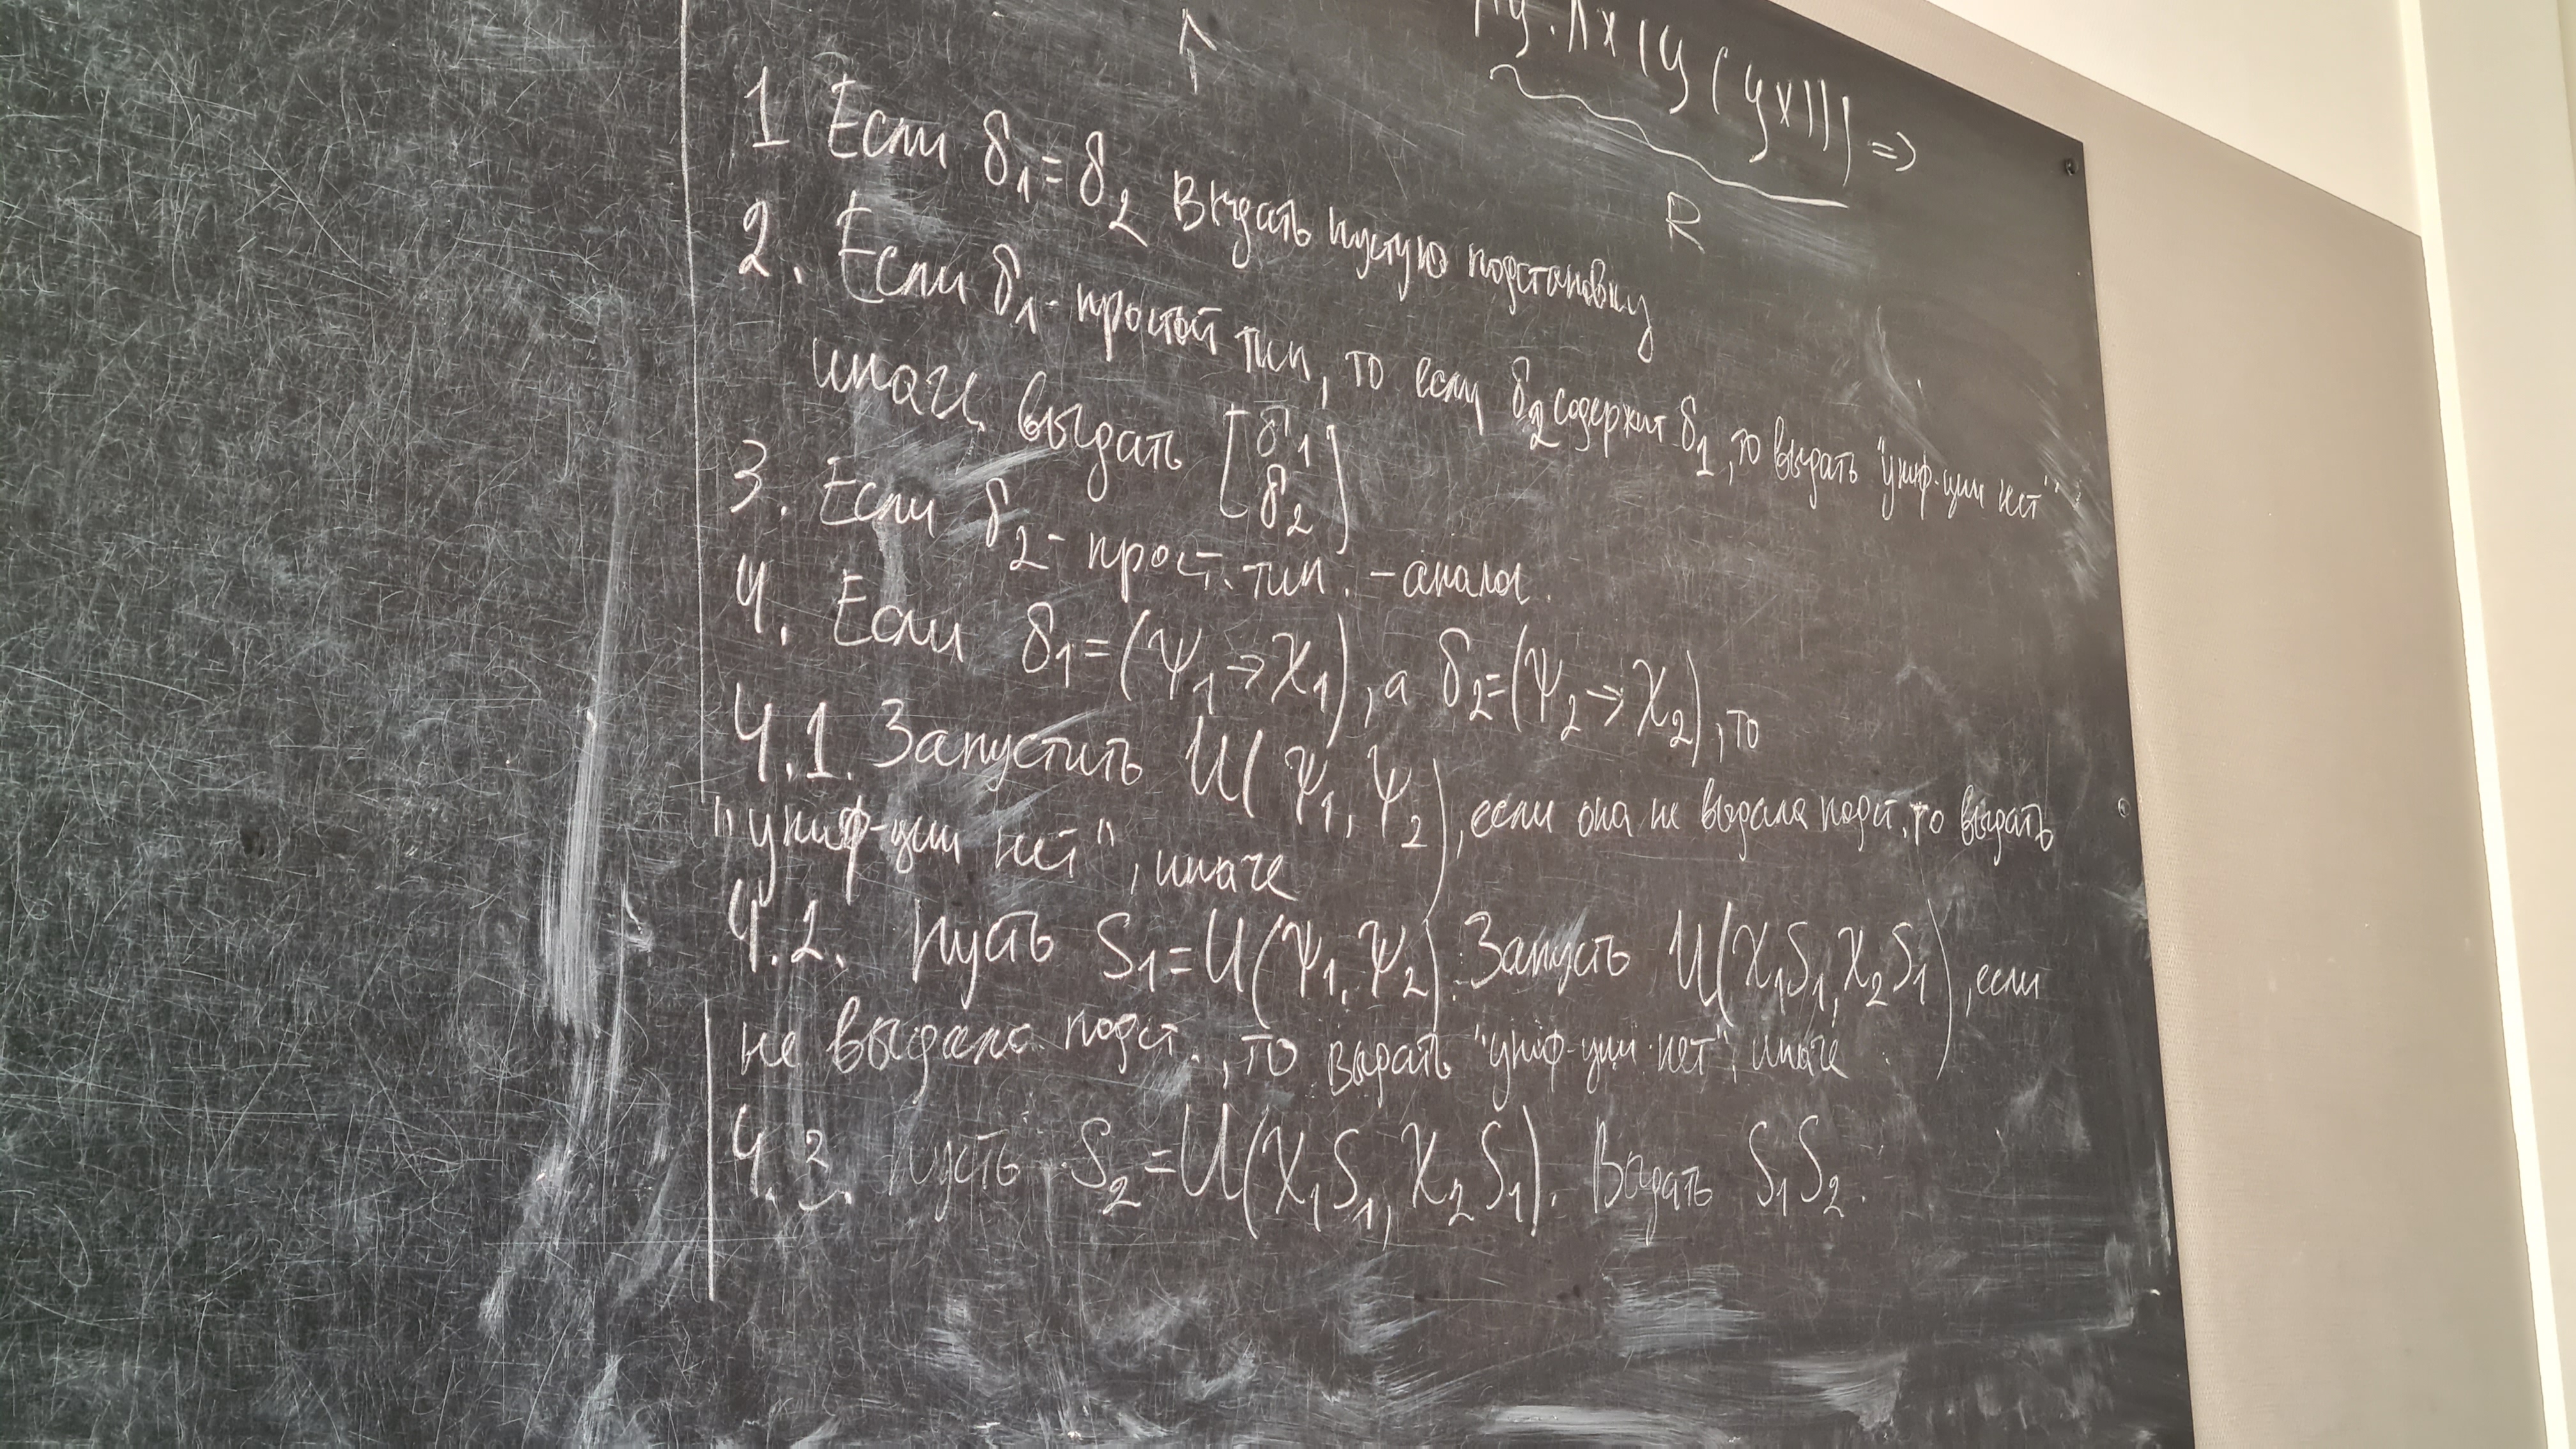 λx(y(yx))) =>
R
1 Если δ₁=δ₂ выдать пустую подстановку
2. Если δ₁ - простой тип, то если δ₂ содержит δ₁, то выдать "униф-ции нет"
иначе выдать [δ₁ δ₂]
3. Если δ₂ - прост. тип. - аналог.
4. Если δ₁=(Ψ₁→χ₁), а δ₂=(Ψ₂→χ₂), то
4.1. Запустить U(Ψ₁, Ψ₂), если она не выдала подст, то выдать
"униф-ции нет", иначе
4.2. Пусть S₁=U(Ψ₁, Ψ₂). Запусть U(χ₁S₁, χ₂S₁), если
не выдала подст., то выдать "униф-ции нет", иначе
4.3. Пусть S₂=U(χ₁S₁, χ₂S₁). Выдать S₁S₂.